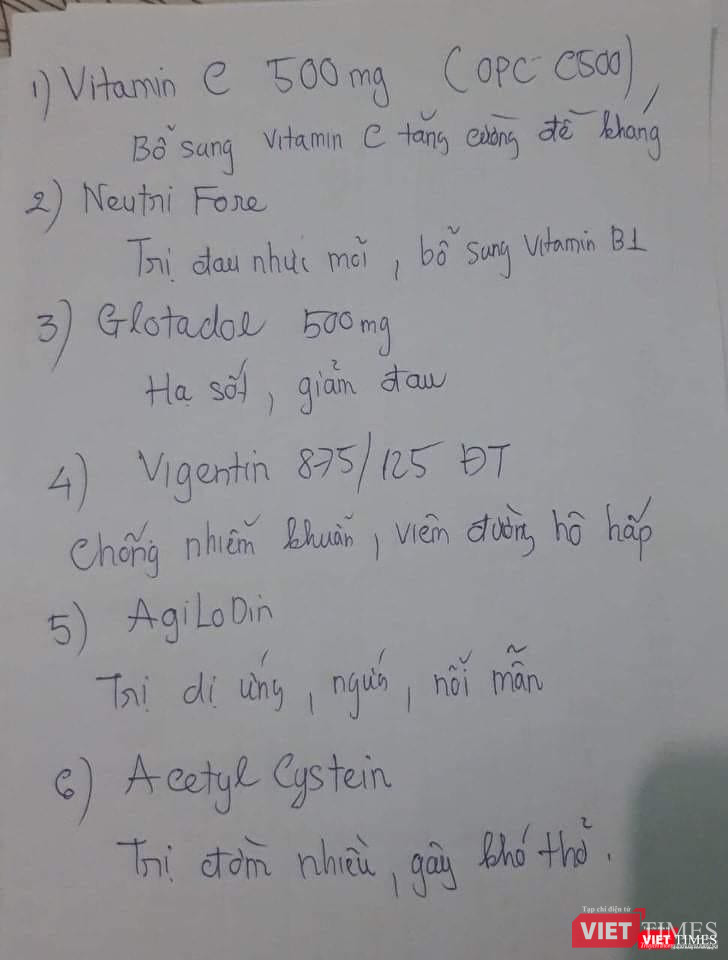 1) Vitamin C 500mg (OPC C500),
Bổ sung Vitamin C tăng cường đề kháng
2) Neutri Fore
Trị đau nhức mỏi, bổ sung Vitamin B1
3) Glotadol 500mg
Hạ sốt, giảm đau
4) Vigentin 875/125 ĐT
Chống nhiễm khuẩn, viêm đường hô hấp
5) AgiLoDin
Trị dị ứng, ngứa, nổi mẫn
6) Acetyl Cystein
Trị đờm nhiều, gây khó thở.
Tạp chí điện tử
VIETTIMES
VIETTIMES